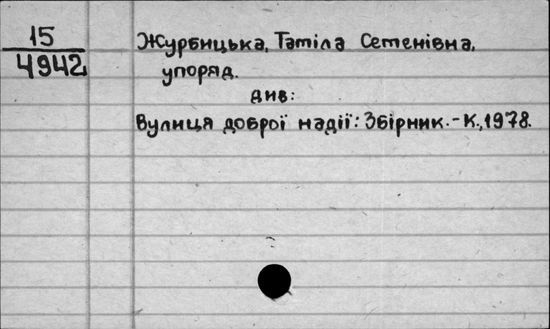 15
4942
Журбицька, Таміла Семенівна,
упоряд.
див:
Вулиця доброї надії: Збірник.-К.,1978.